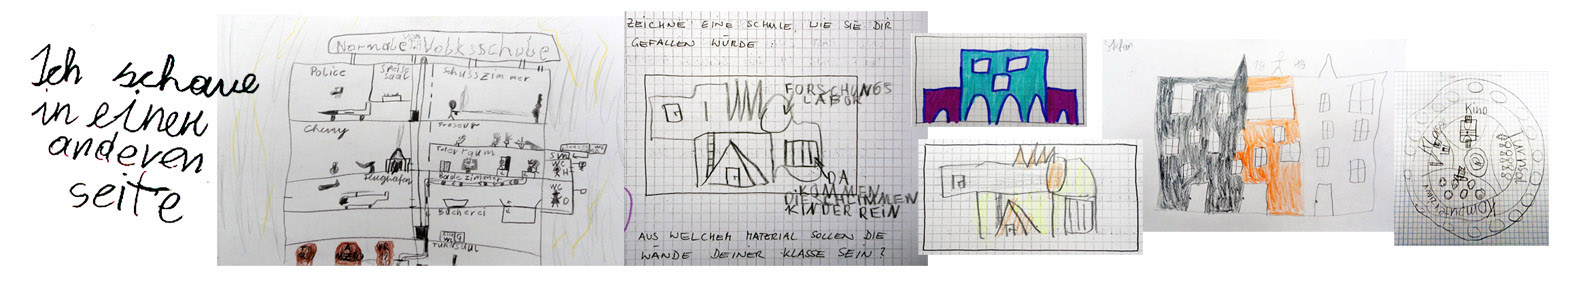 Ich schaue
in einen
anderen
seite
Normale Volksschule
Police
Speise
saal
Schusszimmer
Chemy
Friseur
Tierraum
Flughafen
Badezimmer
Bücherei
Turnsaal
WC
H
WC
D
ZEICHNE EINE SCHULE, WIE SIE DIR
GEFALLEN WÜRDE
FORSCHUNGS
LABOR
DA
KOMMEN
DIE SCHLIMMEN
KINDER REIN
AUS WELCHEM MATERIAL SOLLEN DIE
WÄNDE DEINER KLASSE SEIN?
Stefan
Kino